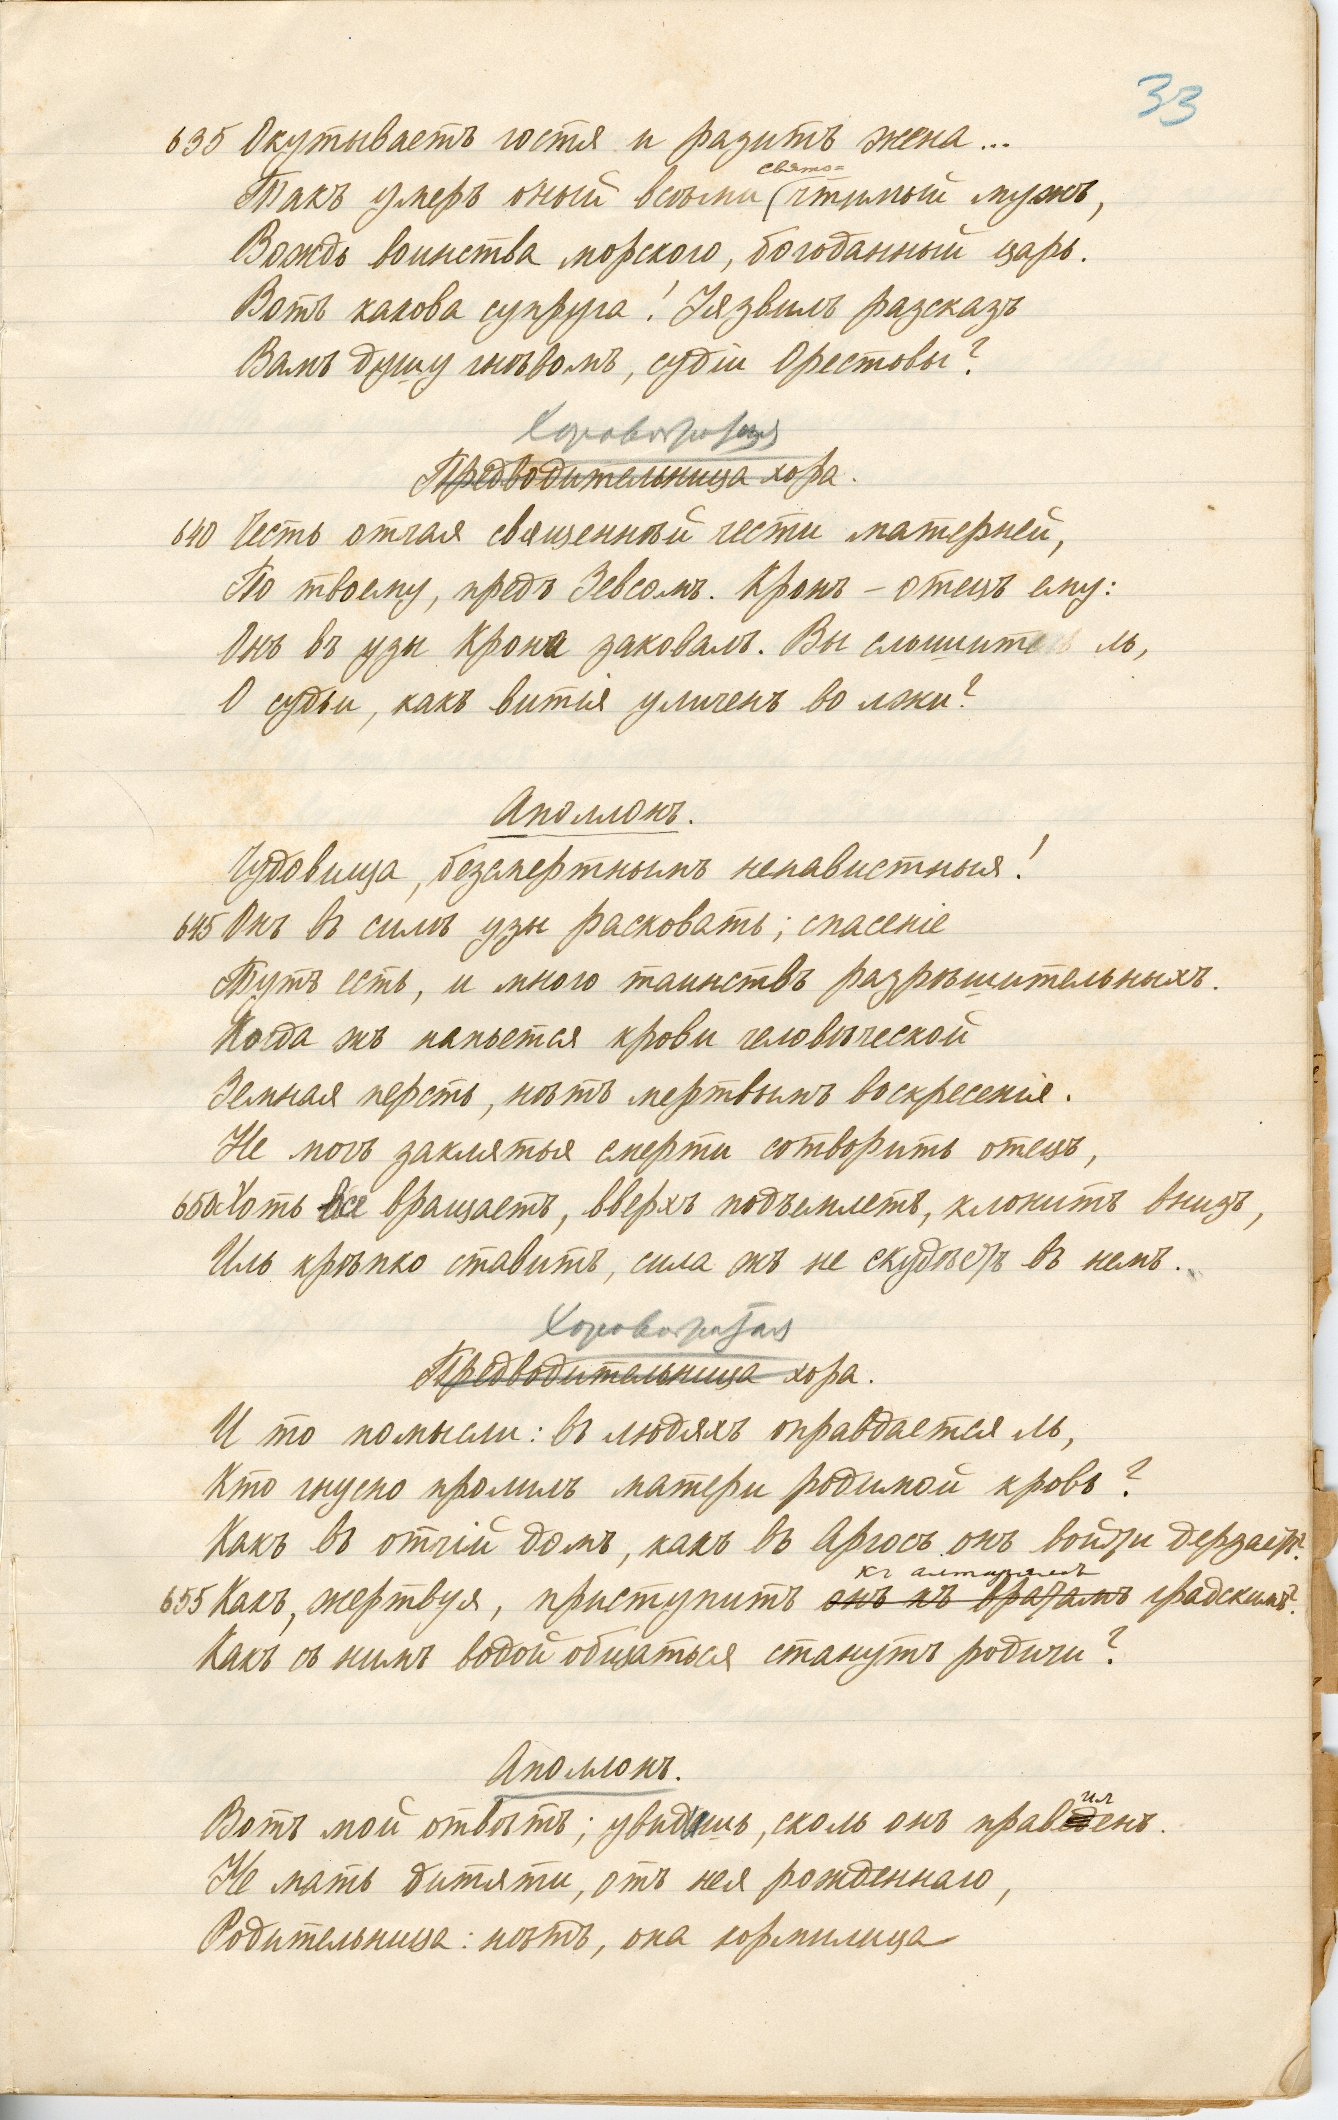 33
635 Окутываетъ гостя и разитъ жена...
свято=
Такъ умеръ оный всѣми чтимый мужъ,
Вождь воинства морского, богоданный царь.
Вотъ какова супруга! Уязвилъ разсказъ
Вамъ душу гнѣвомъ, судіи Орестовы?
Хороводная
Предводительница хора.
640 Честь отчая священнѣй чести матерней,
По твоему, предъ Зевсомъ. Кронъ – отецъ ему:
Онъ въ узы Крона заковалъ. Вы слышите ль,
О судьи, какъ витія уличенъ во лжи?
Аполлонъ.
Чудовища, безсмертнымъ ненавистныя!
645 Онъ въ силѣ узы расковать; спасеніе
Тутъ есть, и много таинствъ разрѣшительныхъ.
Когда жъ напьется крови человѣческой
Земная персть, нѣтъ мертвымъ воскресенія.
Не могъ заклятья смерти сотворить отецъ,
650 Хоть все вращаетъ, вверхъ подъемлетъ, клонитъ внизъ,
Иль крѣпко ставитъ, сила жъ не скудѣетъ въ немъ.
Хороводная
Предводительница хора.
И то помысли: въ людяхъ оправдается ль,
Кто гнусно пролилъ матери родимой кровь?
Какъ въ отчій домъ, какъ въ Аргосъ онъ войти дерзаетъ?
къ алтарямъ
655 Какъ, жертвуя, приступитъ онъ къ вратамъ градскимъ?
Какъ съ нимъ водой общаться станутъ родичи?
Аполлонъ.
Вотъ мой отвѣтъ; увидишь, сколь онъ праведенъ.
Не мать дитяти, отъ нея рожденнаго,
Родительница: нѣтъ, она кормилица